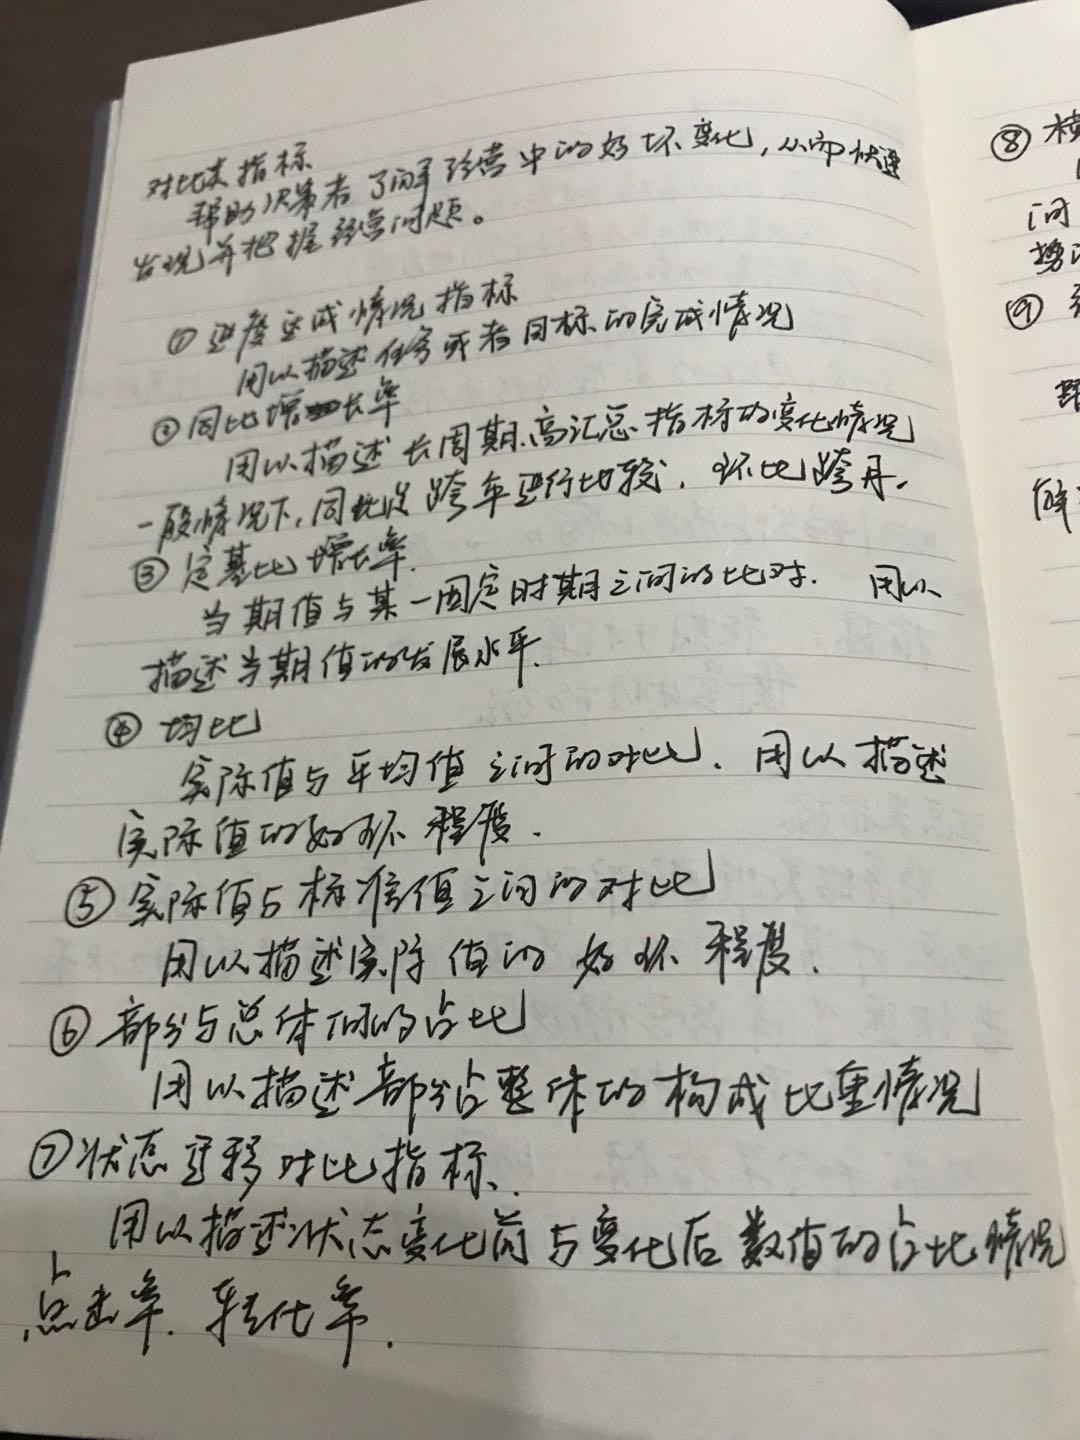 对比类指标
帮助决策者了解经营中的好坏变化，从而快速
发现并把握经营问题。
① 进度达成情况指标
用以描述任务或者目标的完成情况
② 同比增长率
用以描述长周期、高汇总指标的变化情况
一般情况下，同比是跨年进行比较，环比跨月。
③ 定基比增长率.
当期值与某一固定时期之间的比对. 用以
描述当期值的发展水平.
④ 均比
实际值与平均值之间的对比. 用以描述
实际值的好坏程度.
⑤ 实际值与标准值之间的对比
用以描述实际值的好坏程度.
⑥ 部分与总体间的占比
用以描述部分占整体的构成比重情况
⑦ 状态迁移对比指标.
用以描述状态变化前与变化后数值的占比情况
点击率. 转化率.
⑧ 横
问
势
⑨
解